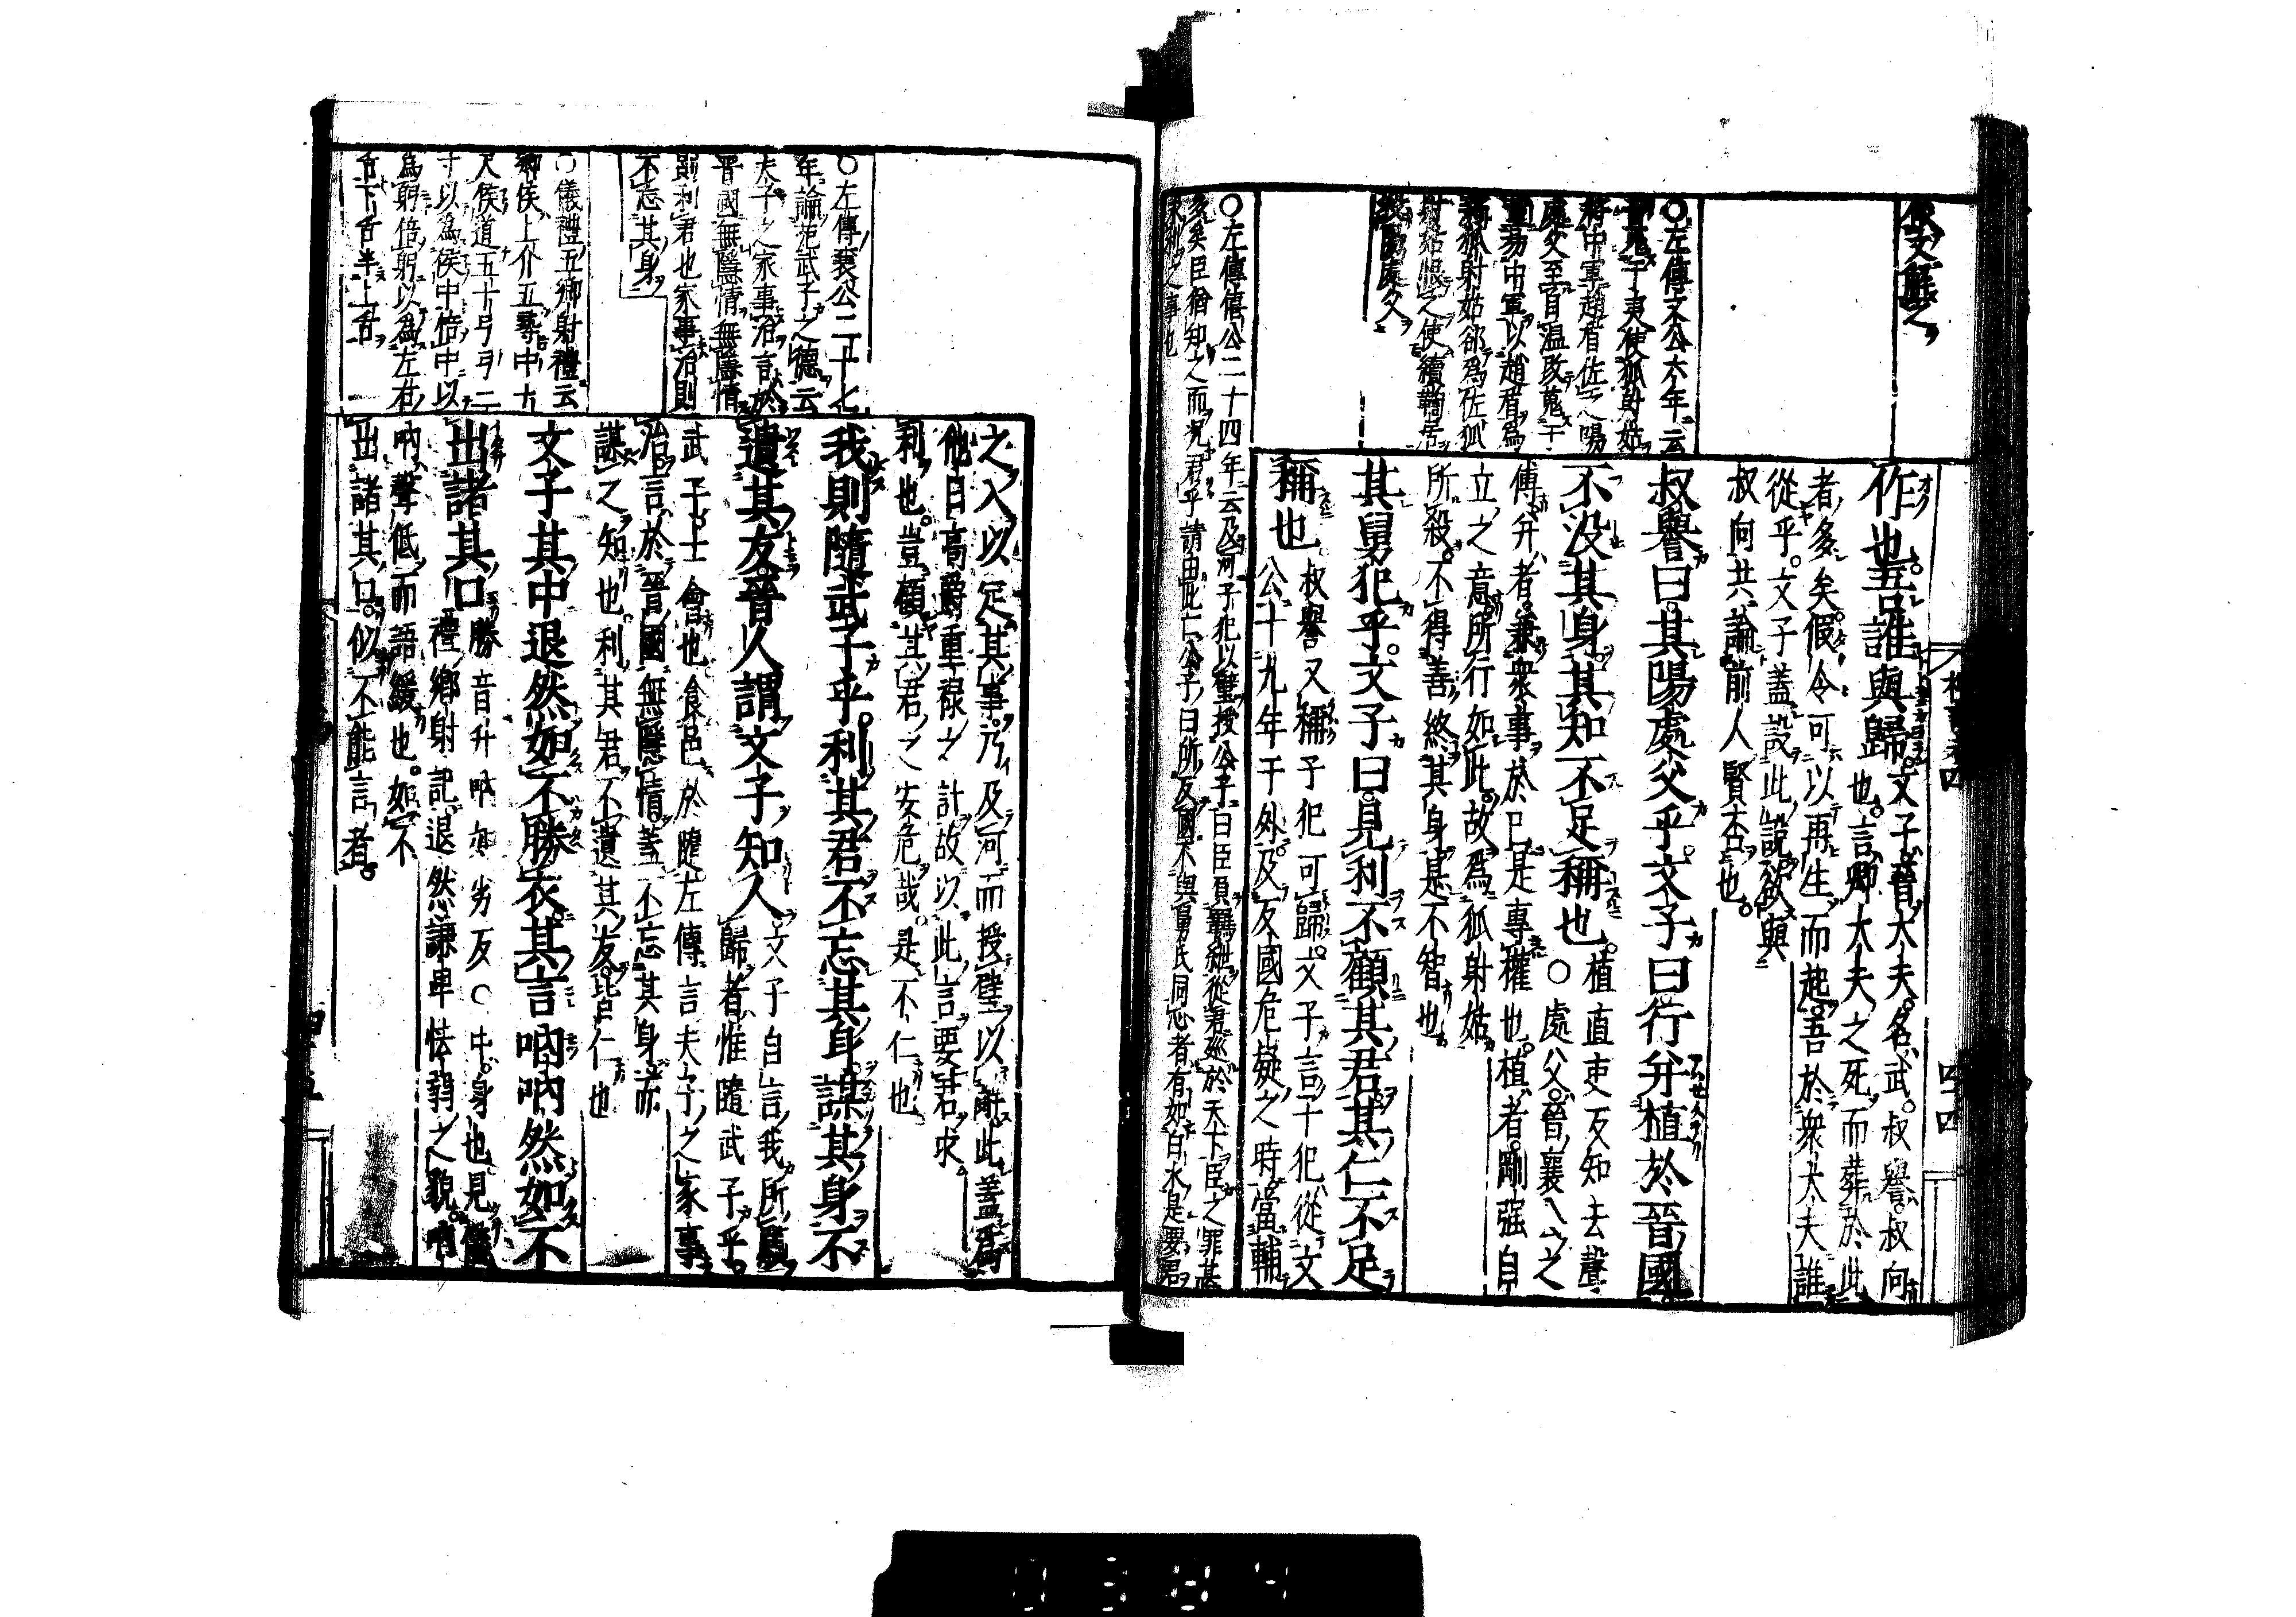 作也吾誰與歸
文子晉大夫。名武。叔譽。叔向
也。言卿大夫之死而葬於此
者多矣。假令可以再生而起。吾於衆大夫誰
從乎。文子蓋設此説欲與
叔向共論前人賢否也。
叔譽曰。其陽處父乎。文子曰行并植於晉國。
不没其身。其知不足稱也。
植直吏反知去聲
○處父。晉襄公之
傅并者。兼衆事於已。是專權也。植者。剛强自
立之意。所行如此。故爲狐射姑
所殺。不得善終其身。是不智也。
其舅犯乎。文子曰。見利不顧其君。其仁不足
稱也
叔譽又稱子犯可歸。文子言子犯從文
公十九年于外。及反國危疑之時。當輔
○左傳文公六年云
將中軍趙盾佐之陽
處父至自温改蒐于
易中軍以趙盾爲
狐射姑爲佐狐
射姑恨之使續鞫居
處父
○左傳僖公二十四年云及河子犯以璧授公子曰臣負羈絏從君巡於天下臣之罪甚
多矣臣猶知之而況君乎請由此亡公子曰所反國不與舅氏同心者有如白水是要君
求利之事也
四十四
之入以定其事。乃及河而授璧以辭。此蓋爲
他日高爵重祿之計。故以此言要君求
利也。豈顧其君之安危哉。是不仁也
我則隨武子乎。利其君不忘其身。謀其身不
遺其友。晉人謂文子知人
文子自言。我所
歸者。惟隨武子乎。
武子。士會也。食邑於隨。左傳言夫子之家事
治。言於晉國無隱情。蓋不忘其身而
謀之。知也。利其君不遺其友。皆仁也
文子其中退然如不勝衣。其言吶吶然如不
出諸其口
勝音升吶如劣反○中。身也。見儀
禮鄉射記。退然謙卑怯弱之貌。吶
吶聲低而語緩也。如不
出諸其口。似不能言者。
○左傳襄公二十七
年論范武子之德云
夫子之家事治言於
晉國無隱情無隱情
則利君也家事治則
不忘其身
○儀禮五鄉射禮云
鄉侯上介五尋中十
尺侯道五十弓弓二
寸以爲侯中倍中以
爲躬倍躬以爲左右
舌下舌半上舌